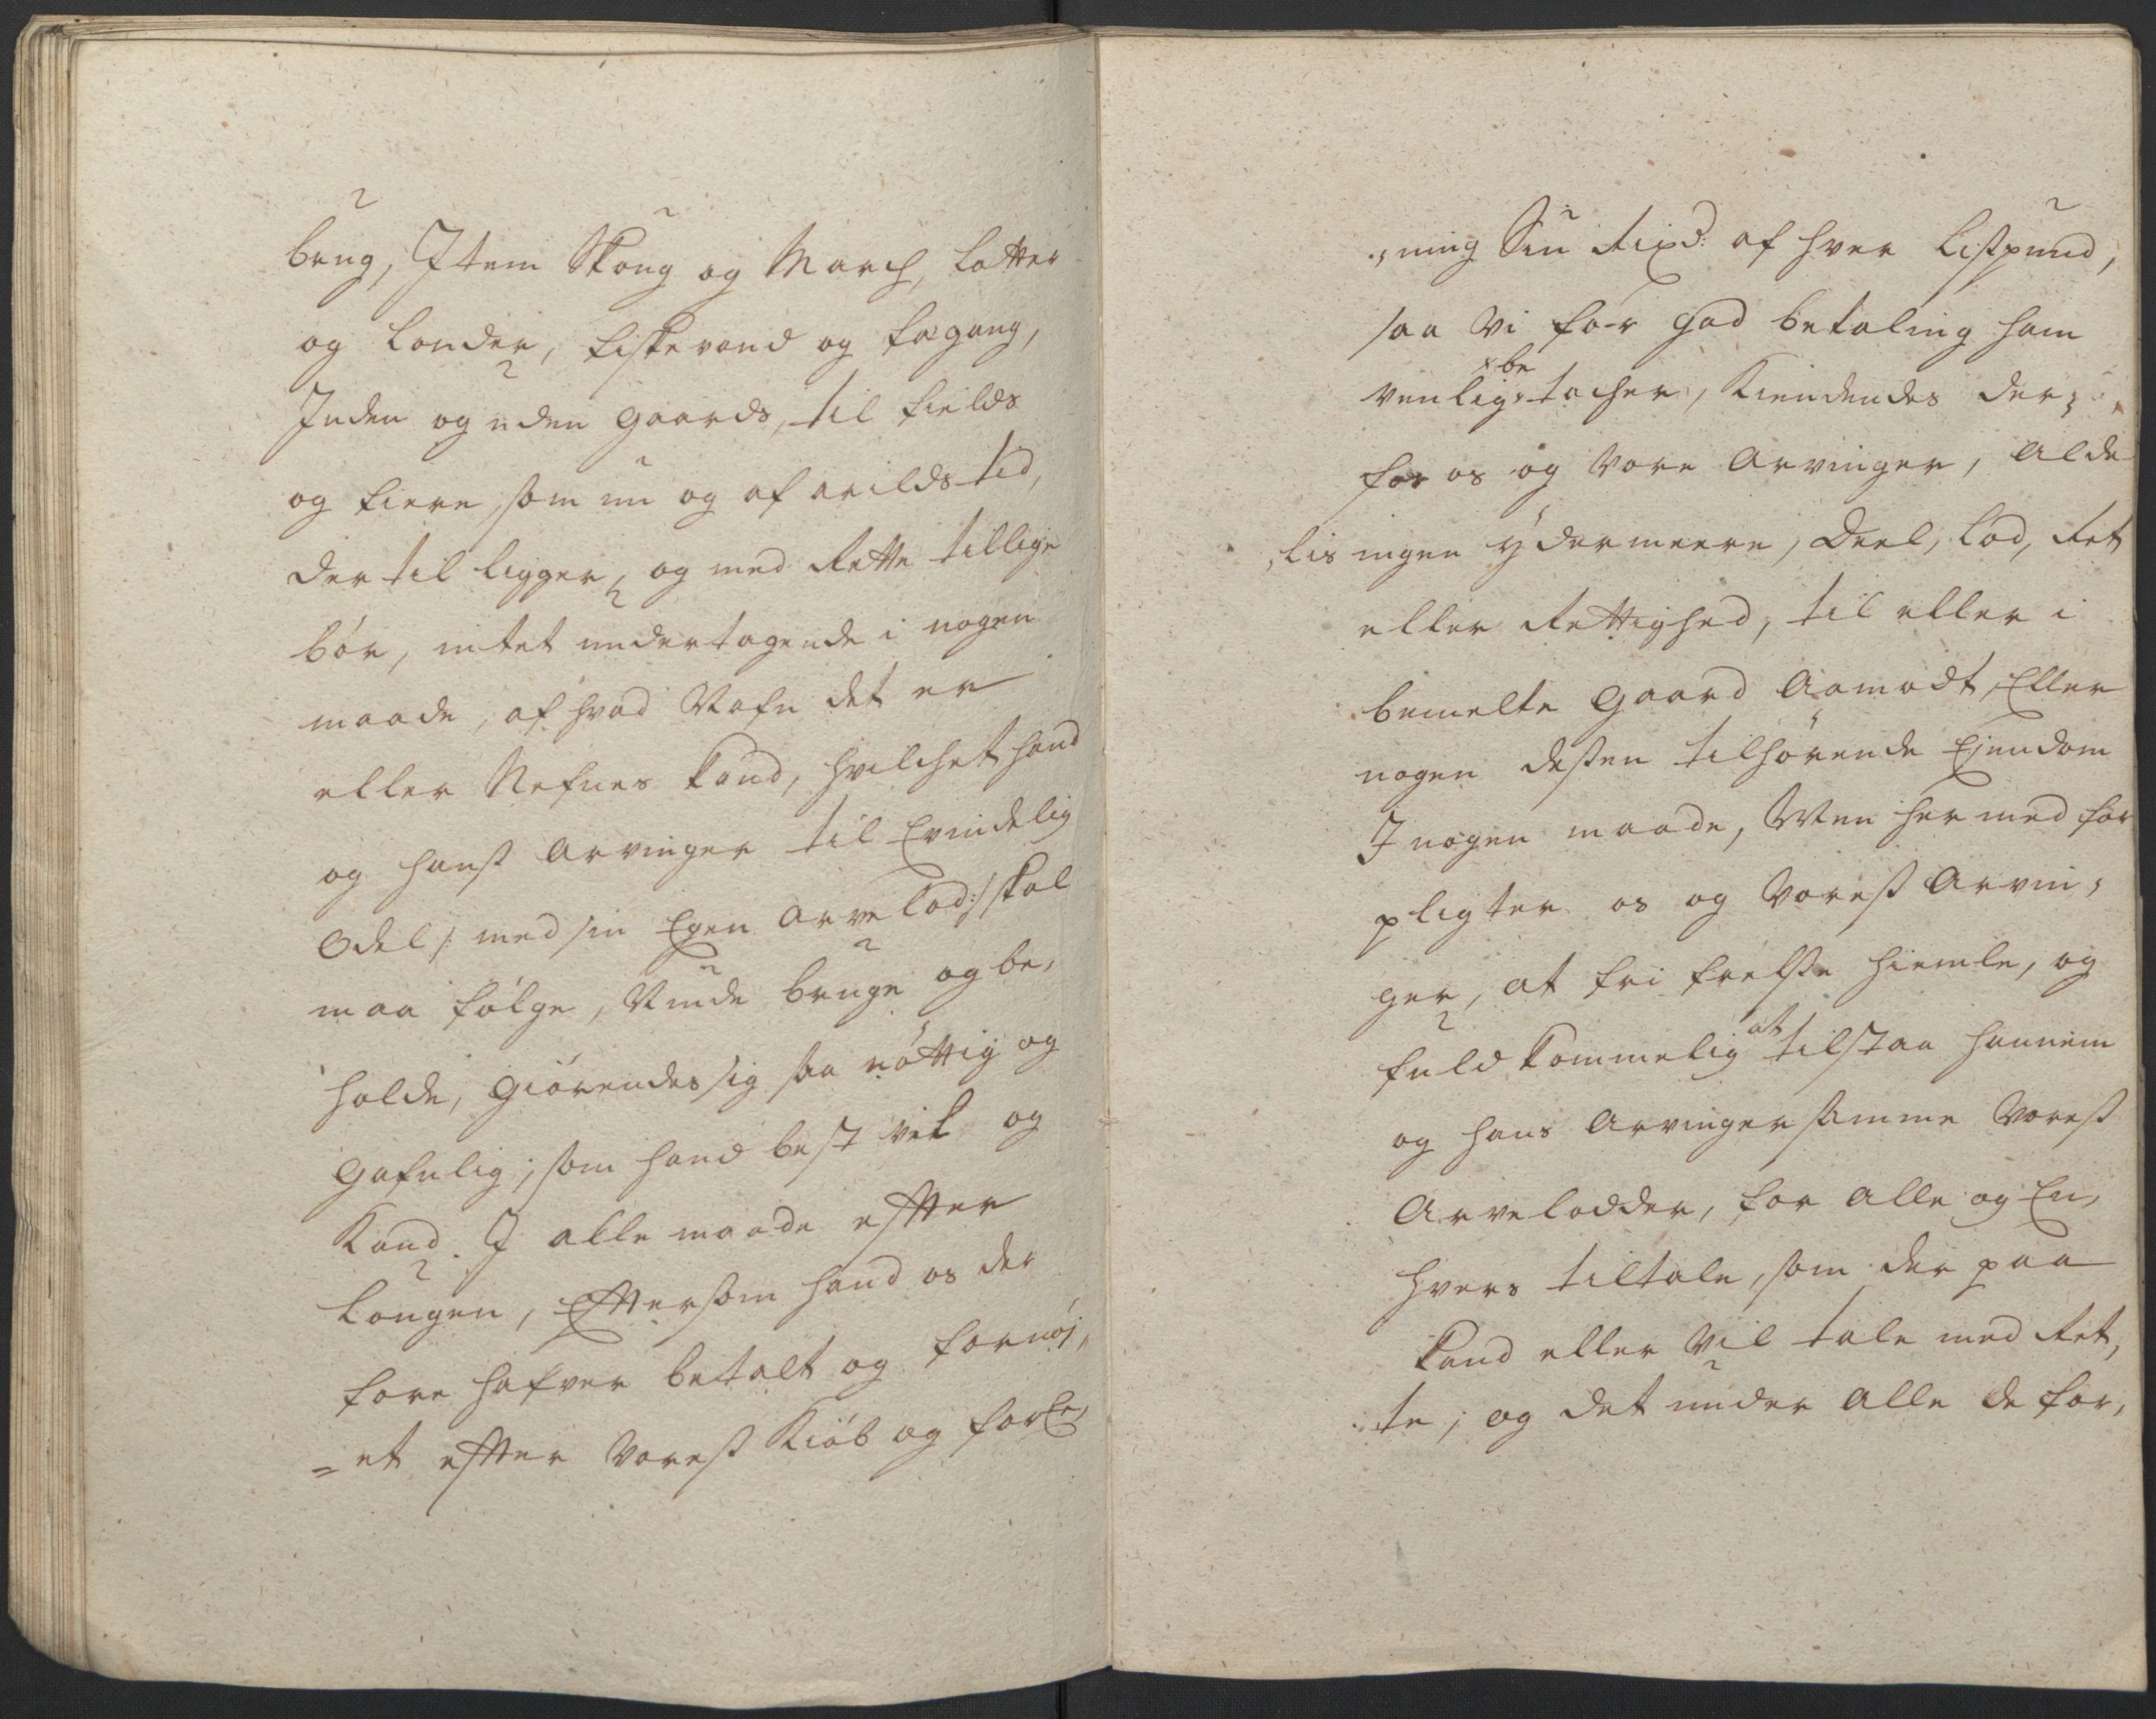 brug, Item Skoug og March, Latter
og Lander, fiskevand og fægang,
Inden og uden Gaards, til fields
og fiere, som nu og af arilds tid,
der til ligger, og med Rette tillige
bør, intet undertagende i nogen
maade, af hvad Nafn det er
eller Nefnes kand, hvilchet hand
og hanß Arvinger til Evindelig
Odel /: med sin Egen Arve Lod:/ skal
maa følge, Nyde bruge og be,
holde, giørendes sig saa nøttig og
gafnlig; som hand best vil og
Kand. I alle maade effter
Lougen, Efftersom hand os der
fore hafver betalt og fornøj,
= et effter Voreß Kiøb og foree,
,,ning Siu Rixd: af hver Lispund,
saa Vi for god betaling ham
venlig xbe tacher, Kiendendes der,,
for os og Vore Arvinger, Alde
,lis ingen ÿdermeere, Deel, Lod, Ret
eller Rettighed, til eller i
bemelte gaard Aamodt, Eller
nogen deßen tilhørende Ejendom
I nogen maade, Men her med for
pligter os og Voreß Arvin,
ger, at fri frelße hiemle, og
fuldkommelig at tilstaa hannem
og hans Arvinger samme Voreß
Arvelodder, for Alle og En,
hvers tiltale, som der paa
kand eller Vil tale med Ret,
te; og det under Alle de for,